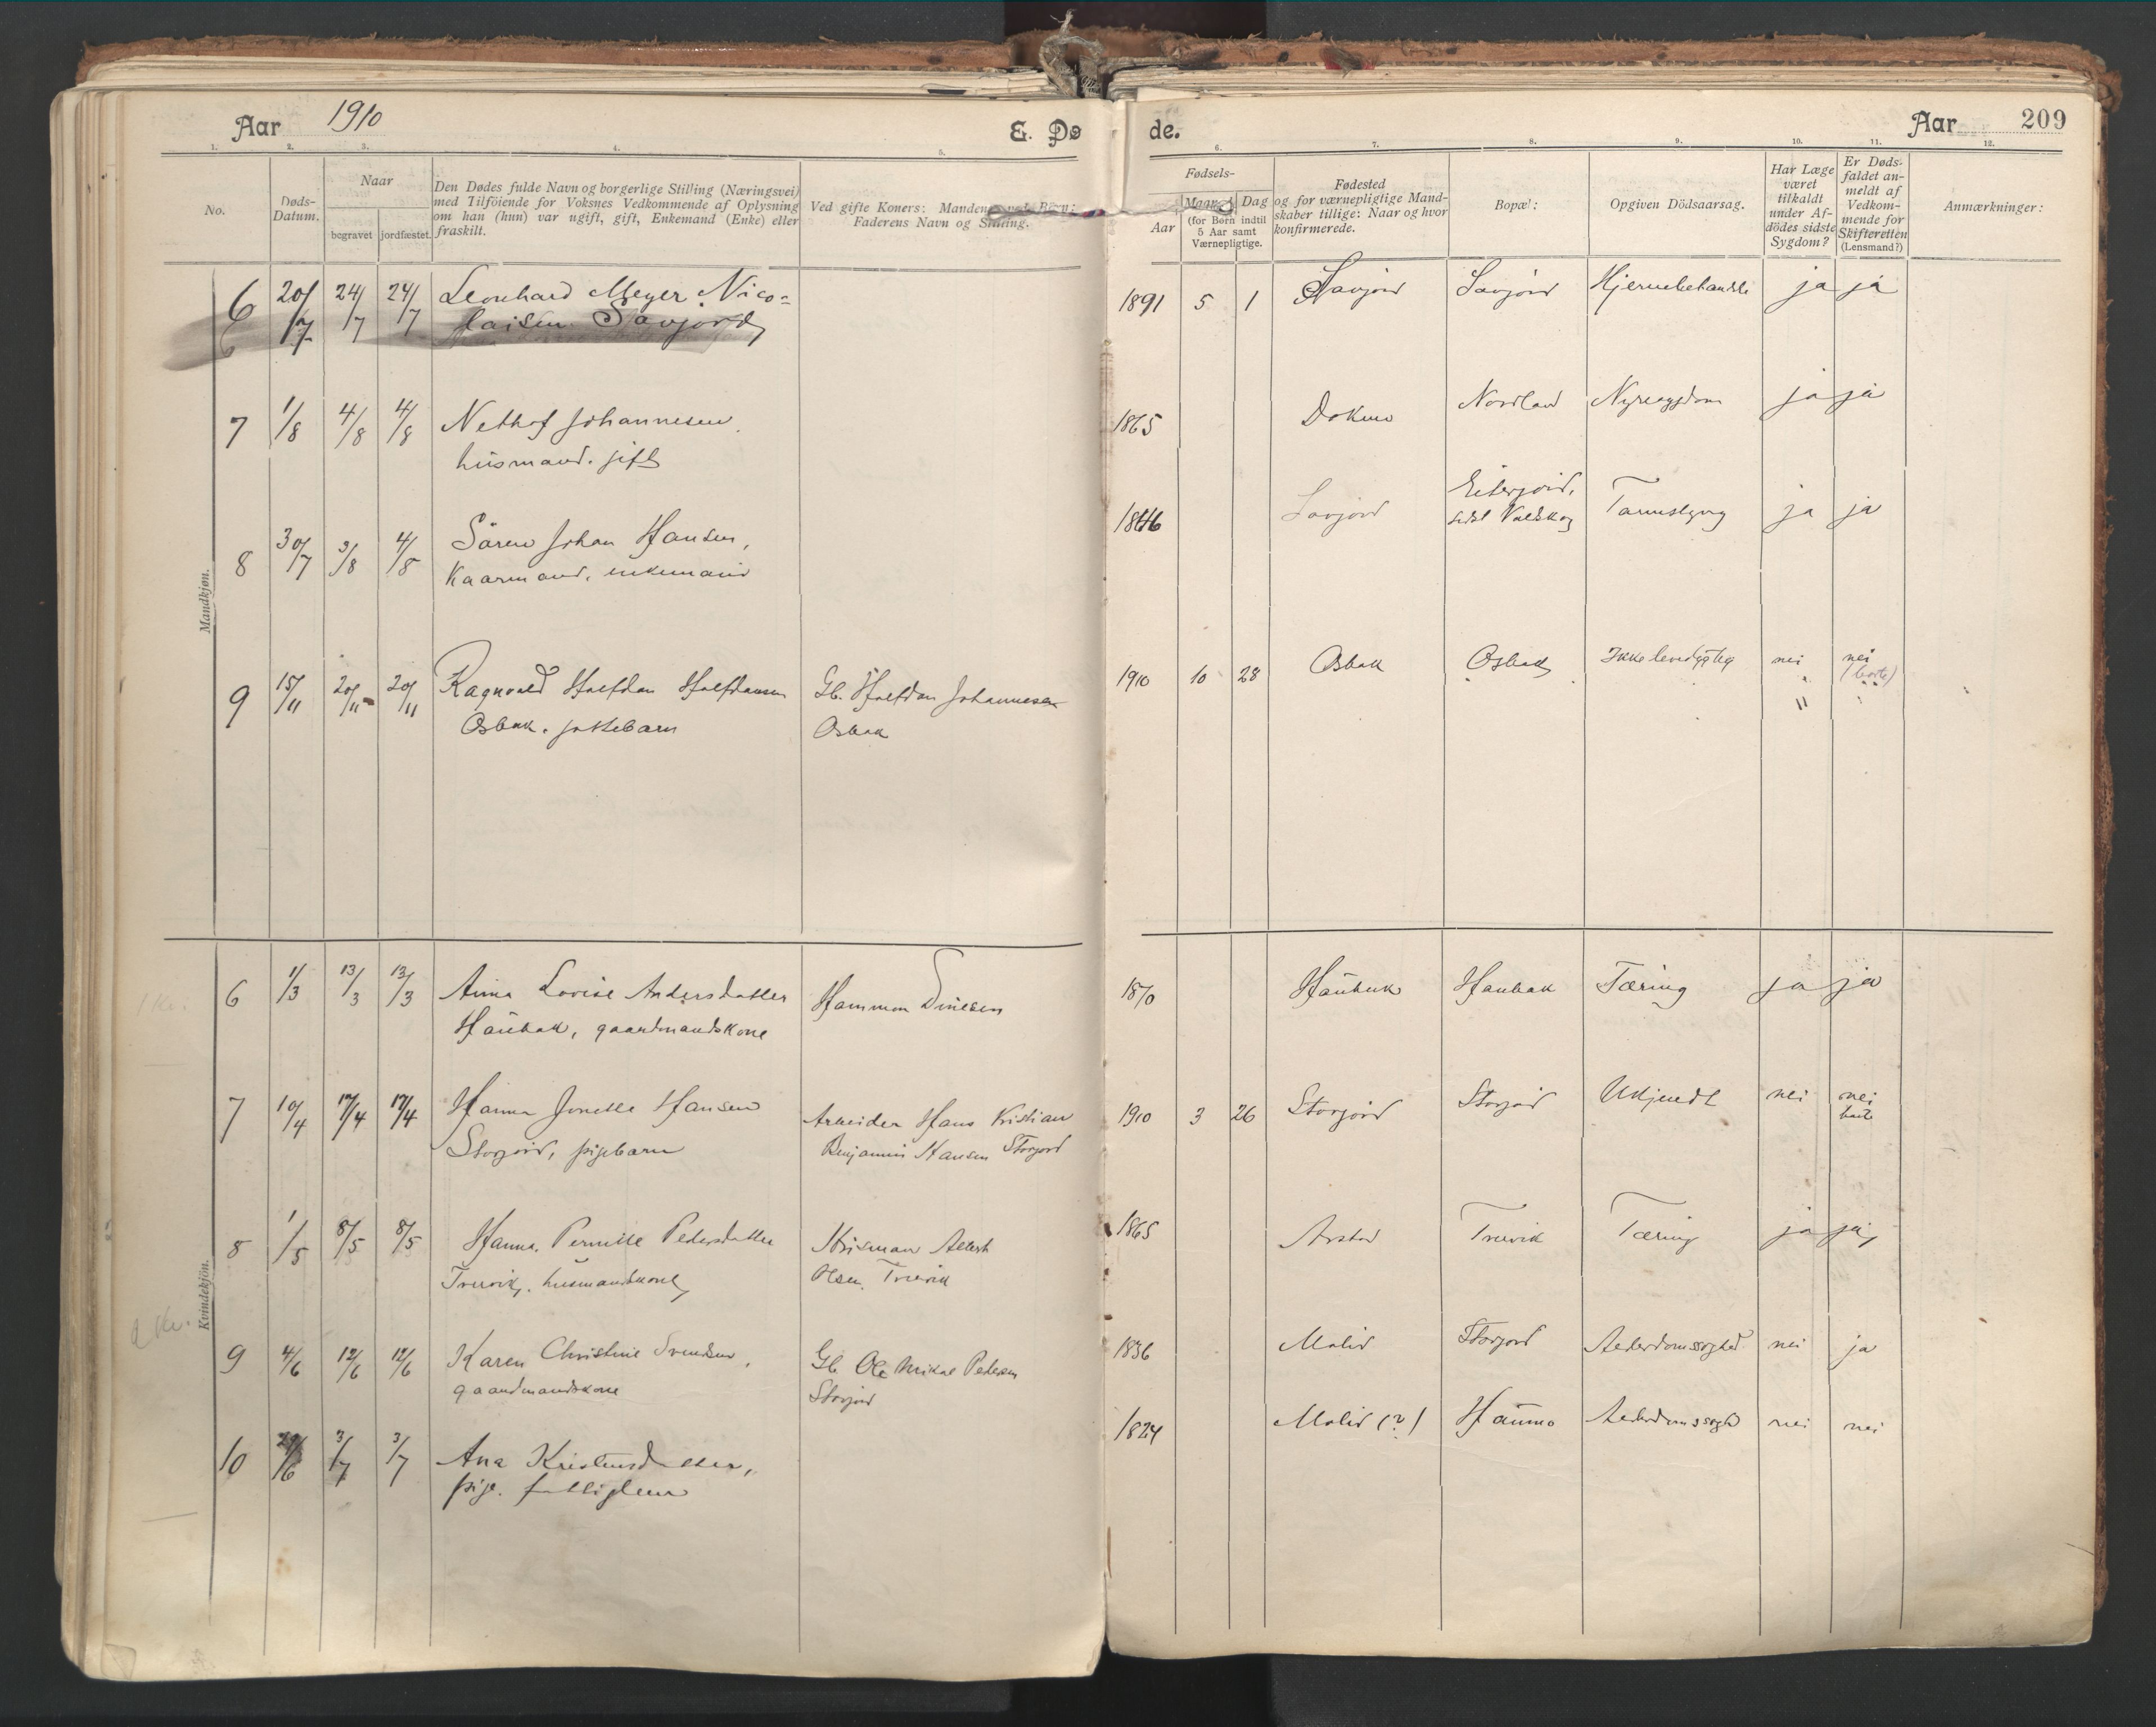 Aar 1910
E. Dø
de.
Aar 209
1. 2. 3. 4. 5. 6. 7. 8. 9. 10. 11. 12.
No.
Døds-
Datum.
Naar
begravet jordfæstet.
Den Dødes fulde Navn og borgerlige Stilling (Næringsvei)
med Tilføiende for Voksnes Vedkommende af Oplysning
om han (hun) var ugift, gift, Enkemand (Enke) eller
fraskilt.
Ved gifte Koners: Mandens, ved Børn:
Faderens Navn og Stilling.
Fødsels-
Aar
Maaned Dag
(for Børn indtil
5 Aar samt
Værnepligtige.
Fødested
og for værnepligtige Mand-
skaber tillige: Naar og hvor
konfirmerede.
Bopæl:
Opgiven Dödsaarsag.
Har Læge
været
tilkaldt
under Af-
dödes sidste
Sygdom?
Er Døds-
faldet an-
meldt af
Vedkom-
mende for
Skifteretten
(Lensmand?)
Anmærkninger:
Mandkjøn.
6 20/7 24/7 24/7 Leonhard Meyer Nico-
laisen Savjord
1891 5 1 Savjord Savjord ja ja
7 1/8 4/8 4/8 Nethof Johannesen
husmand. gift
1865 Dokmo Nordland Nyresygdom ja ja
8 30/7 3/8 4/8 Sören Johan Hansen,
Kaarmand, enkemand
1846 Savjord Eiterjord,
sidst ja ja
9 15/11 20/11 20/11 Ragnvald Halfdan Halfdansen
Osbak. guttebarn
Gb. Halfdan Johannesen
Osbak
1910 10 28 Osbak Osbak Ikke levedygtig nei nei
(borte)
"
Kvindekjön.
1 kv.
6 1/3 13/3 13/3 Anna Lovise Andersdatter
Haubak, gaardmandskone
Hammon Dinesen
1870 Haubak Haubak Tæring ja ja
7 10/4 17/4 17/4 Hanna Jonette Hansen
Storjord, pigebarn
Arbeider Hans Kristian
Benjamin Hansen Storjord
1910 3 26 Storjord Storjord Ukjendt nei nei
borte
8 1/5 8/5 8/5 Hanna Pernille Pedersdatter
Trervik, husmandskone
Husmand Albert
Olsen Trervik
1865 Arstad Trervik Tæring ja ja
2 kv.
9 4/6 12/6 12/6 Karen Christine Svendsen,
gaardmandskone
Gb. Ole Mikal Pedersen
Storjord
1836 Molid Storjord Alderdomssvaghed nei ja
10 3/7 3/7 Ana Kristensdatter,
pige. fattiglem
1824 Molid (?) Haumo Alderdomssvaghed nei nei